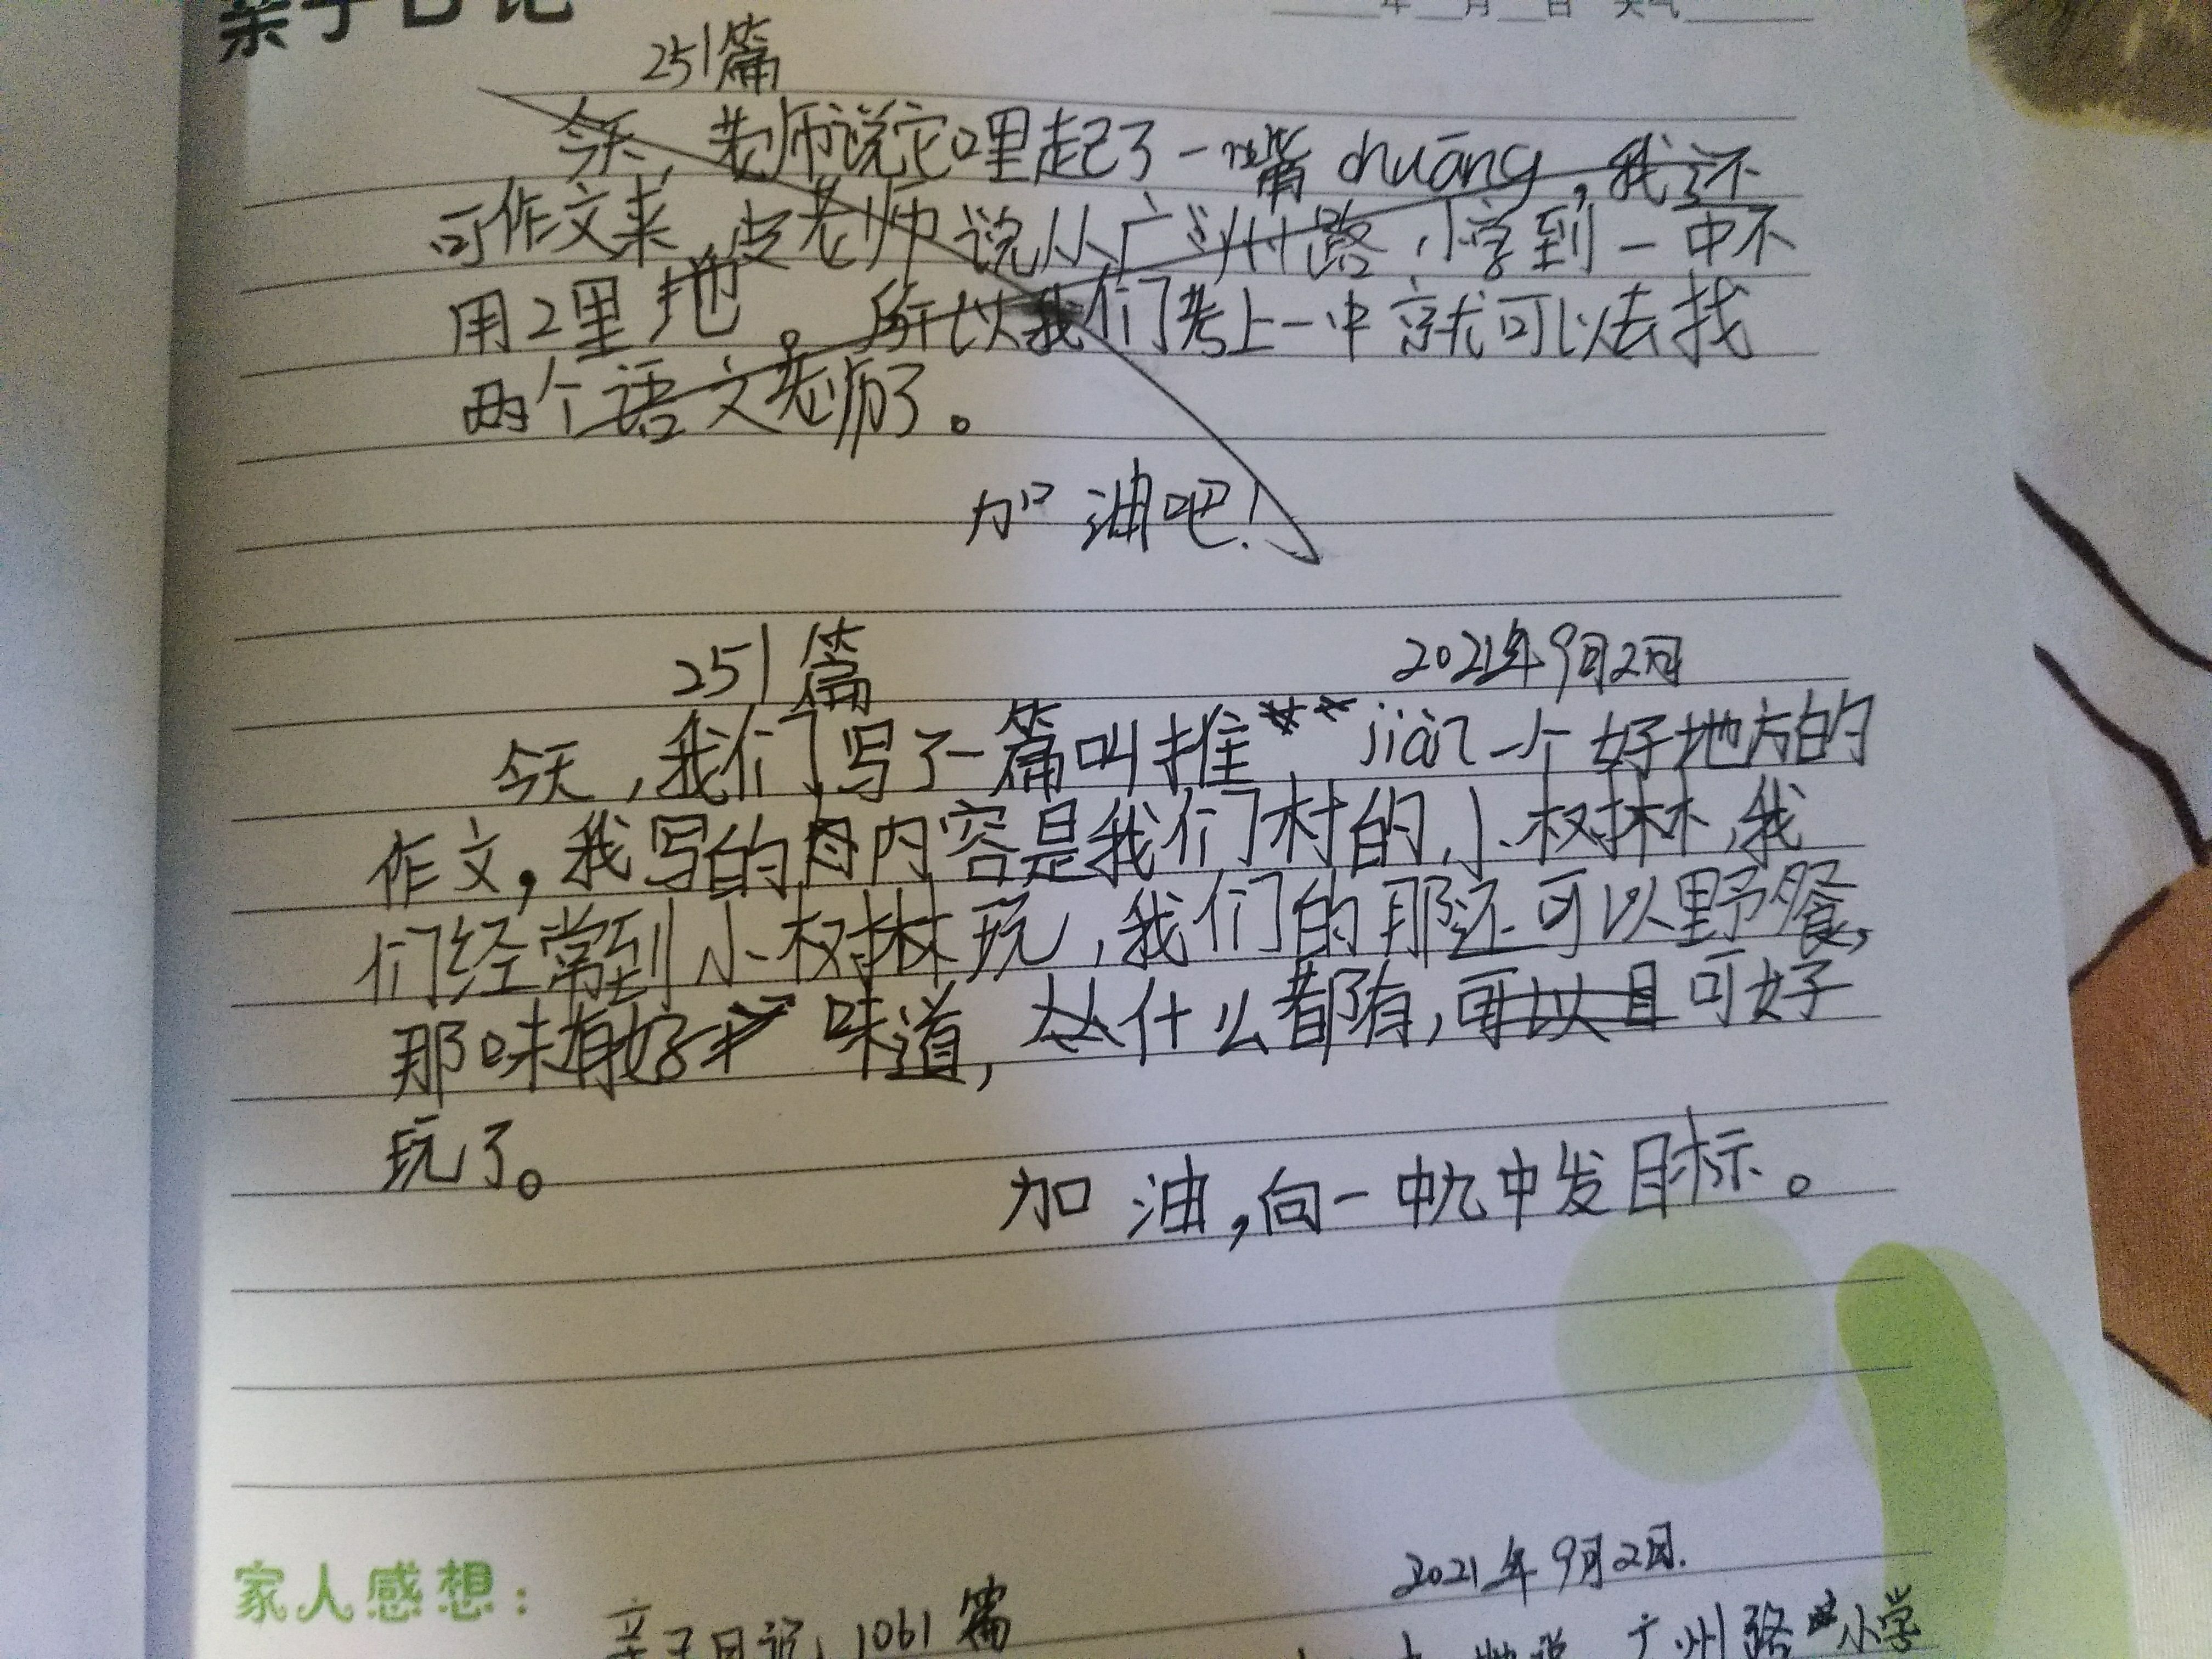 亲子日记
年 月 日 天气
251篇
今天,老师说它口里起了一嘴chuāng,我还
可作文来 皮老师说从广州路小学到一中不
用2里地。所以我们考上一中就可以去找
两个语文老师了。
加油吧!
251篇 2021年9月2日
今天,我们写了一篇叫推 jiàn一个好地方的
作文,我写的内容是我们村的小树林,我
们经常到小树林玩,我们的那还可以野餐,
那味有好 味道,什么都有,可好
玩了。
加油,向一中九中发目标。
家人感想:
2021年9月2日.
亲子日记,1061篇
广州路小学